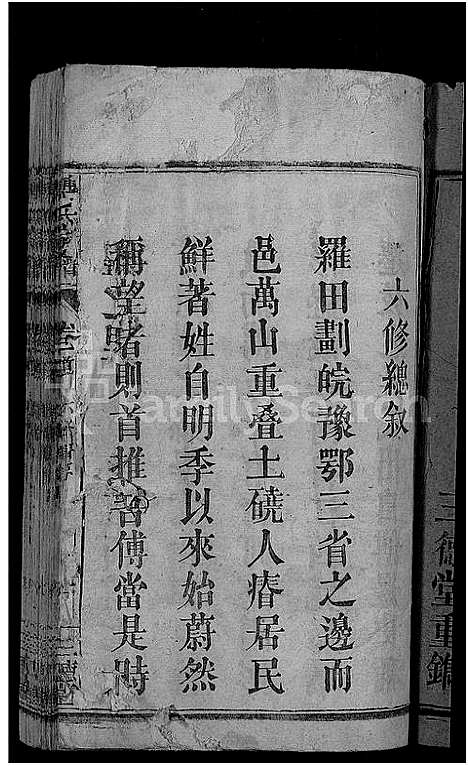 三德堂重鐫
六修總敘
羅田劃皖豫鄂三省之邊而
邑萬山重叠土磽人瘠居民
鮮著姓自明季以來始蔚然
稱望者則首推吾傅當是時
卷首
FamilySearch